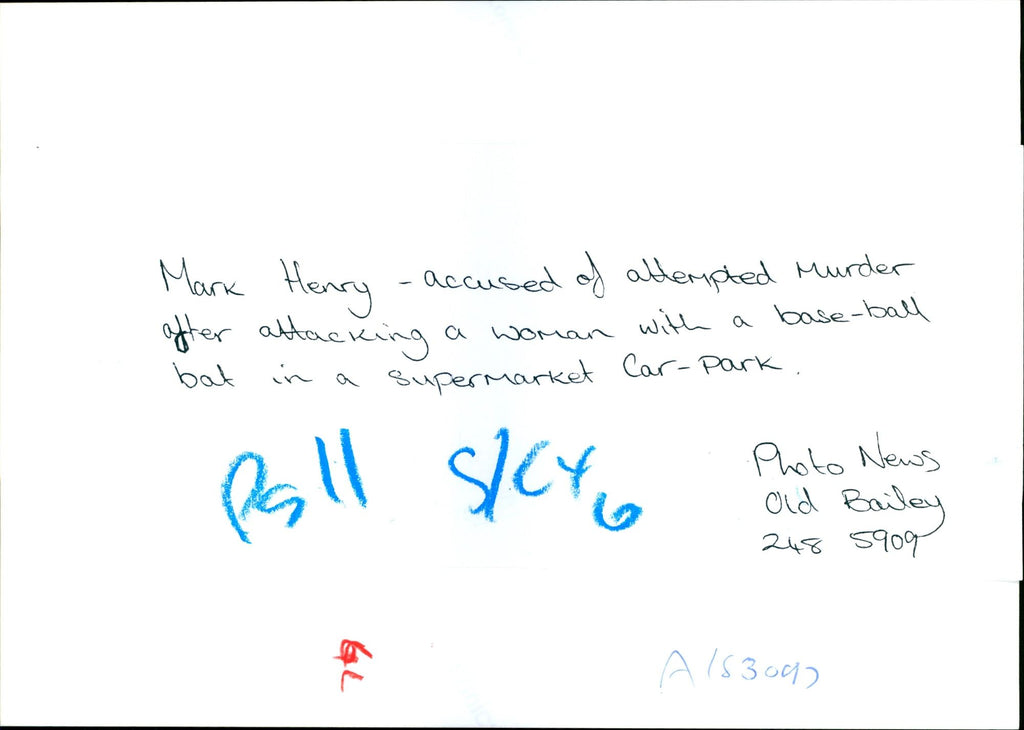 Mark Henry - accused of attempted murder
after attacking a woman with a base-ball
bat in a supermarket Car-Park.
Pg 11 S/C x 6
Photo News
Old Bailey
248 5909